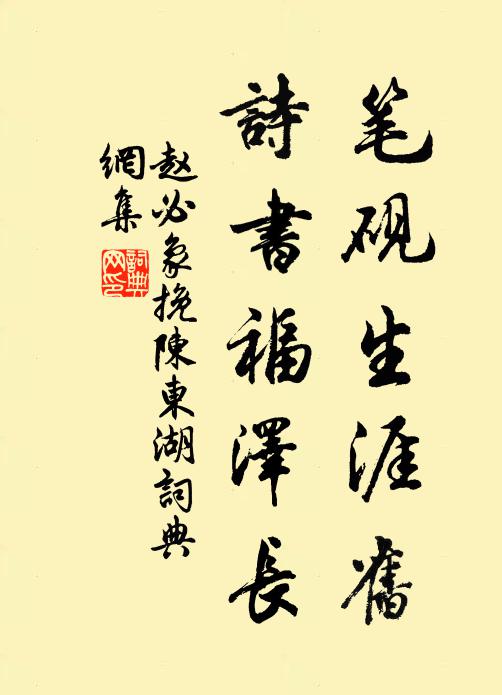 笔砚生涯旧
詩書福澤長
赵必象挽陳東湖詞典
網集
詞典
网印